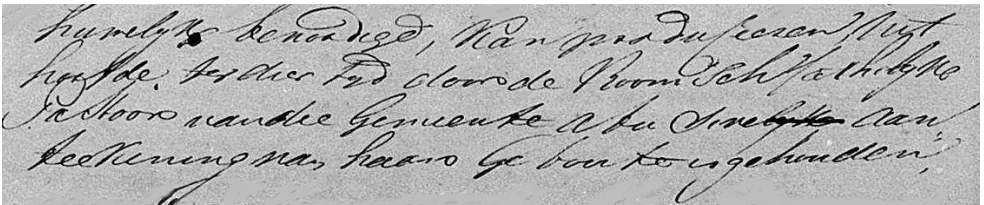 huwelijk benoodigd, kan produceeren, uit
hoofde ter dier tyd door de Roomsch Catholyke
Pastoor van die Gemeente aan
teekening van haare Geboorte is gehouden,